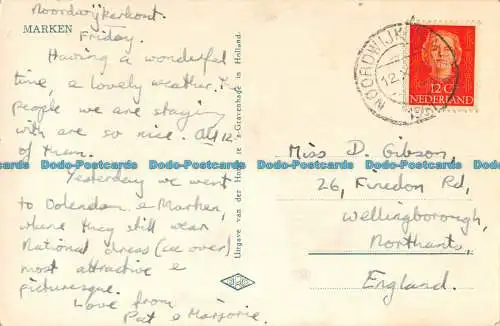 Noordwijkerhout.
MARKEN
Friday.
Having a wonderful
time, a lovely weather. The
people we are staying
with are so nice. All 12
of them.
Yesterday we went
to Volendam & Marken,
where they still wear
National dress (see over)
most attractive &
picturesque.
Love from
Pat & Marjorie.
Uitgave van der
te s-Gravenhage in Holland.
NOORDWIJK
12
12 C
NEDERLAND
Miss D. Gibson,
26, Finedon Rd,
Wellingborough,
Northants,
England.
Dodo-Postcards Dodo-Postcards Dodo-Postcards Dodo-Postcards Dodo-Postcards